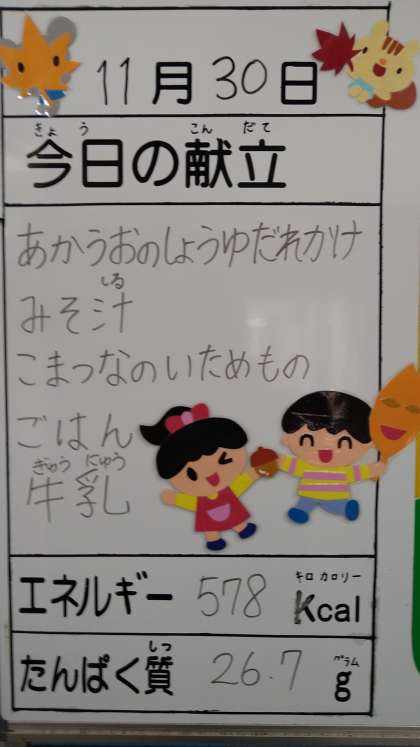 11月30日
きょう こんだて
今日の献立
あかうおのしょうゆだれかけ
しる
みそ汁
こまつなのいためもの
ごはん
ぎゅうにゅう
牛乳
キロカロリー
エネルギー 578 Kcal
しつ グラム
たんぱく質 26.7 g